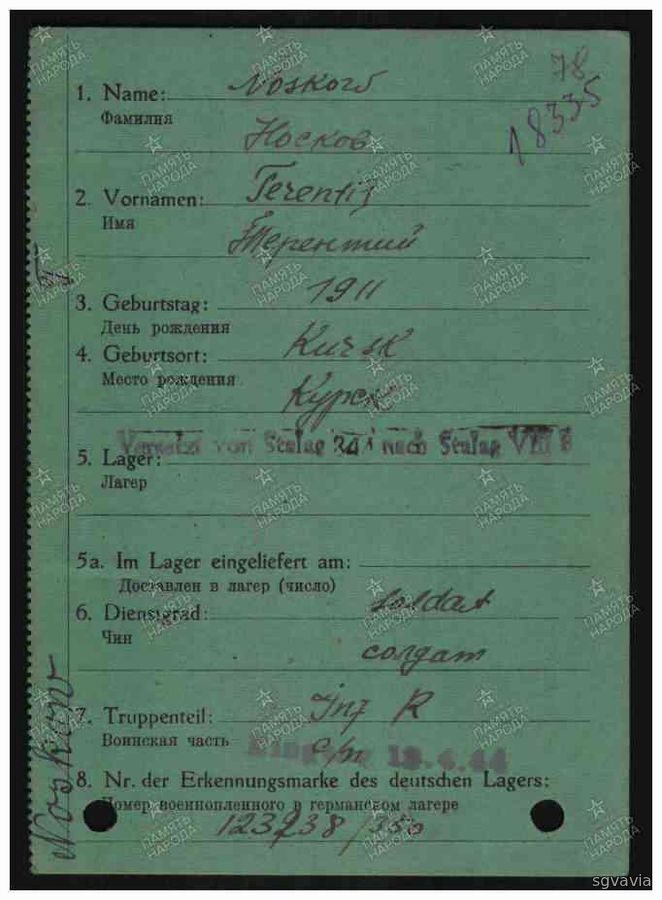 78
18335
1. Name: Noskow
Фамилия
Носков
2. Vornamen: Terentij
Имя
Терентий
3. Geburtstag: 1911
День рождения
4. Geburtsort: Kursk
Место рождения
Курск
Versetzt von Stalag nach Stalag VIII B
5. Lager:
Лагер
5a. Im Lager eingeliefert am:
Доставлен в лагер (число)
6. Dienstgrad: soldat
Чин
солдат
7. Truppenteil: Inf R
Воинская часть с/п
Eingang 18.4.44
8. Nr. der Erkennungsmarke des deutschen Lagers:
Номер военнопленного в германском лагере
Noskow
ПАМЯТЬ НАРОДА
sgvavia